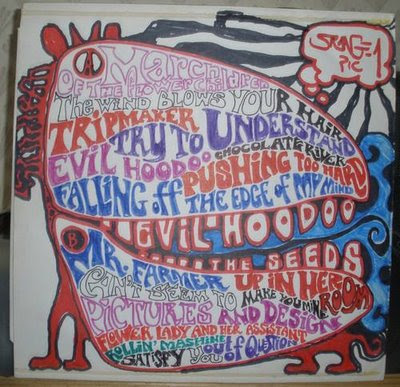 A
March
OF THE FLOWER CHILDREN
THE WIND BLOWS YOUR HAIR
TRIPMAKER
TRY TO UNDERSTAND
EVIL HOODOO
CHOCOLATE RIVER
PUSHING TOO HARD
FALLING OFF THE EDGE OF MY MIND
EVIL HOODOO
THE SEEDS
B
MR. FARMER
UP IN HER ROOM
CAN'T SEEM TO MAKE YOU MINE
PICTURES AND DESIGN
FLOWER LADY AND HER ASSISTANT
ROLLIN' MASHINE
OUT OF QUESTION
SATISFY YOU